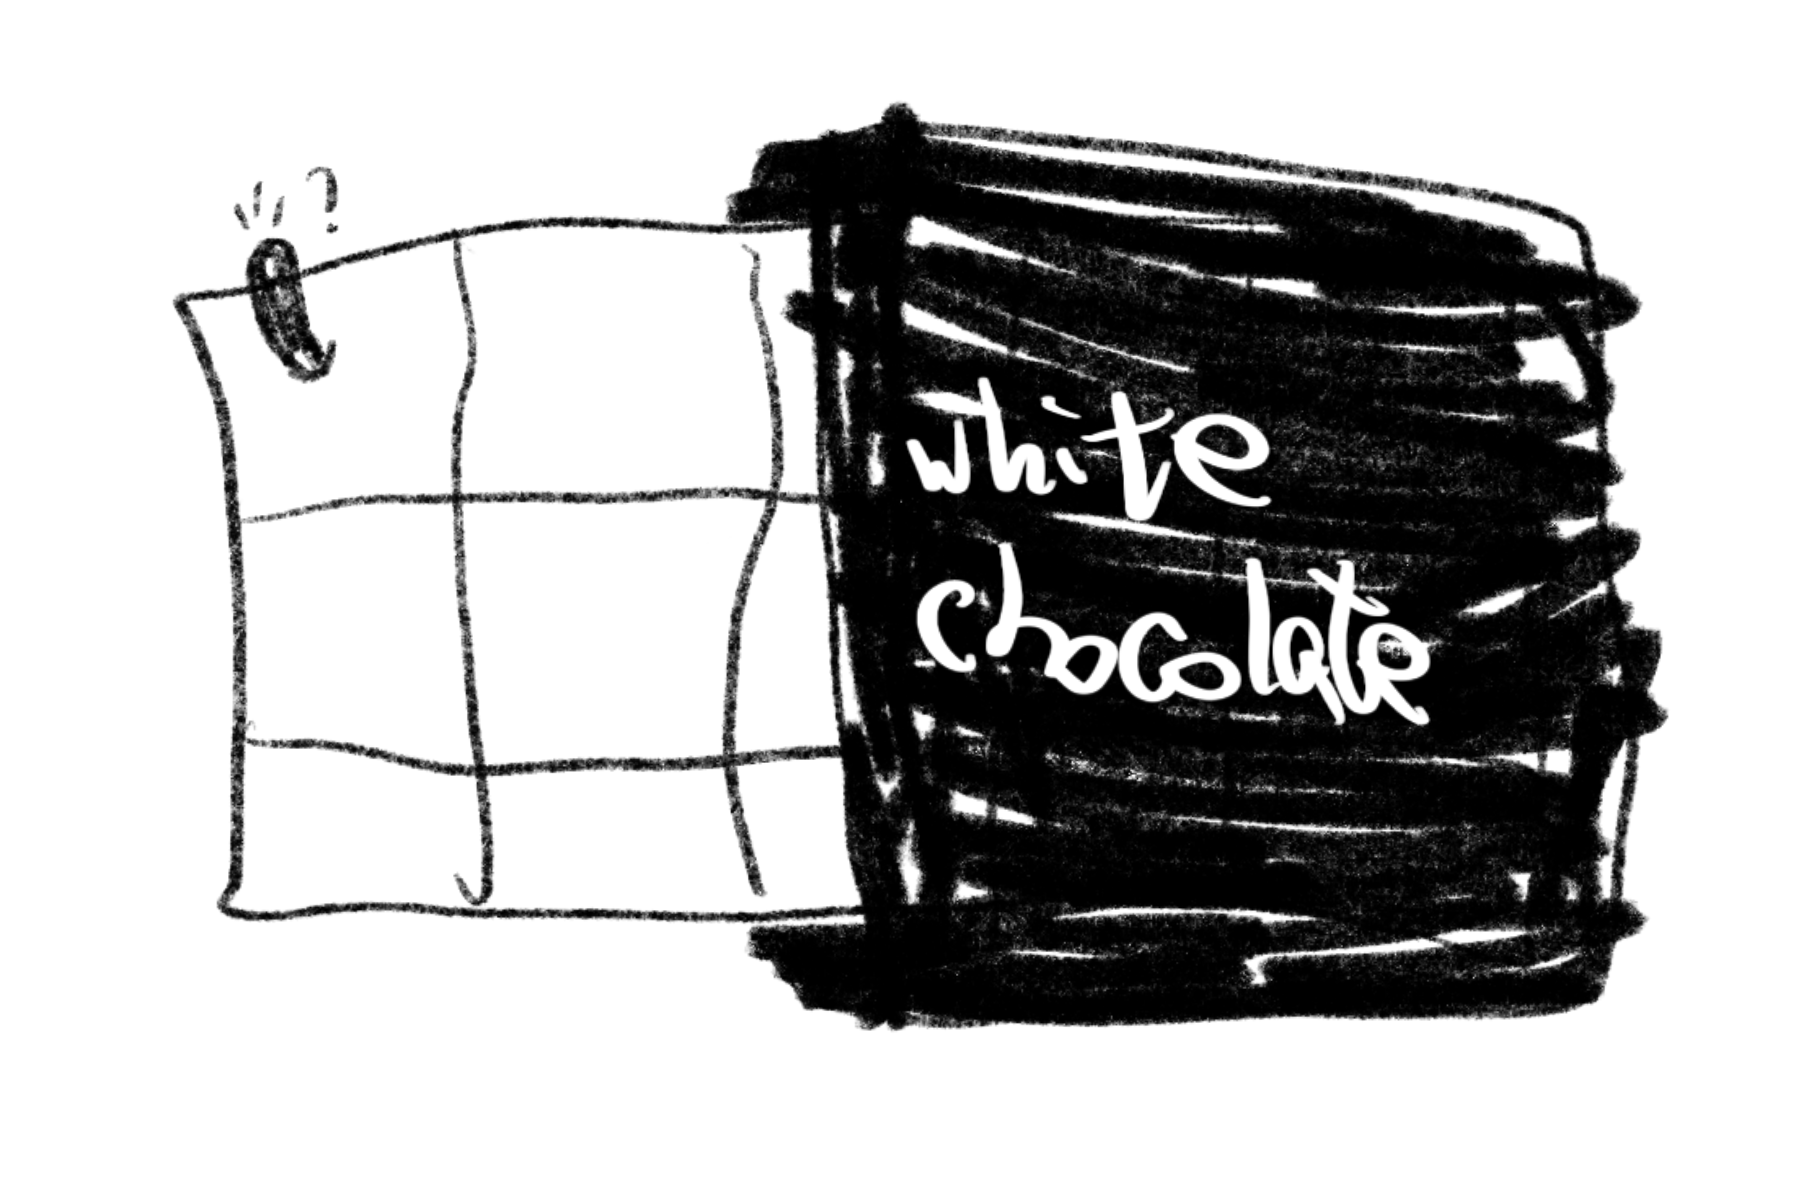 ?
white
chocolate